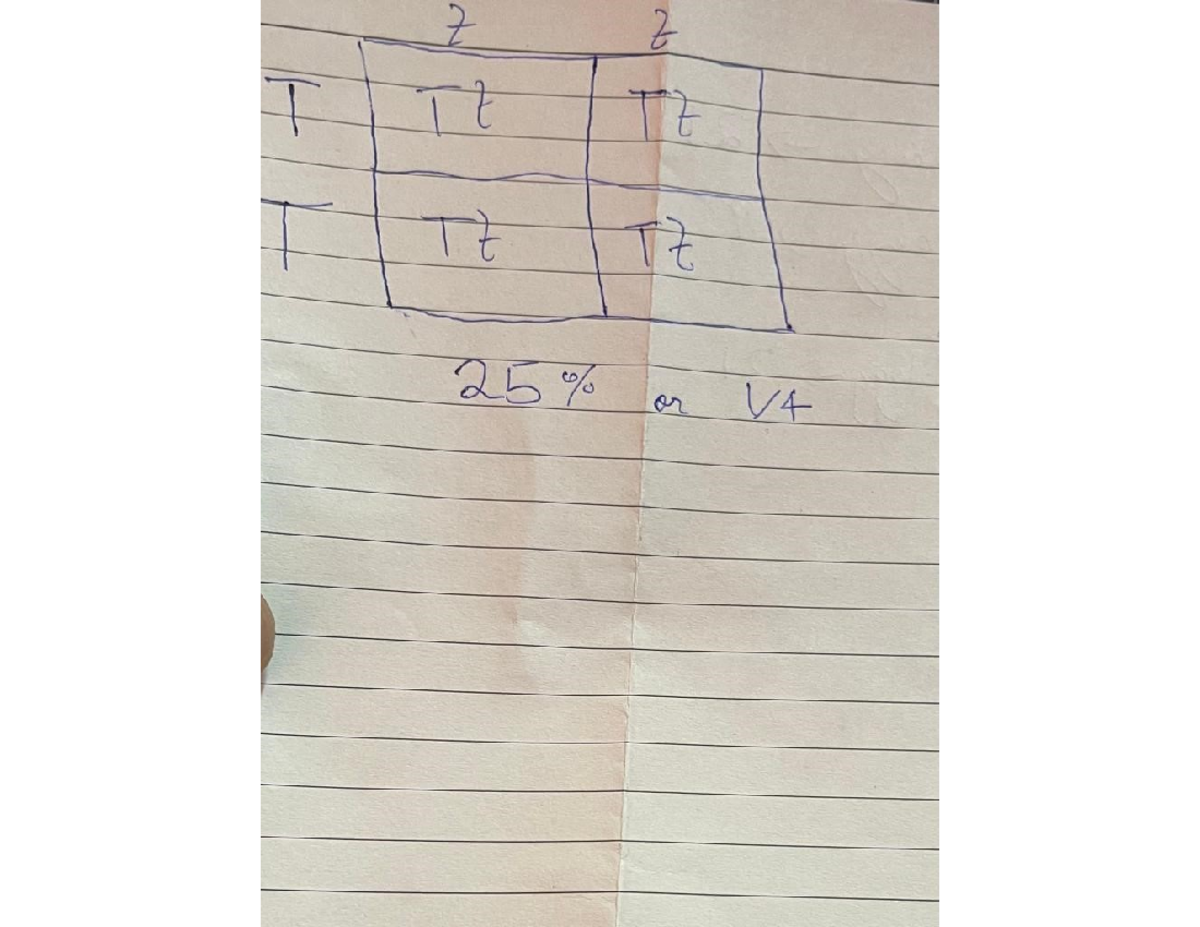 t t
T Tt Tt
T Tt Tt
25% or 1/4